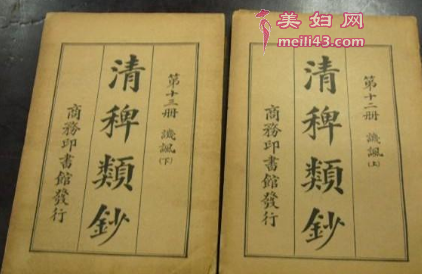 美妇网
meili43.com
第十二冊 譏諷(上)
清稗類鈔
商務印書館發行
第十三冊 譏諷(下)
清稗類鈔
商務印書館發行